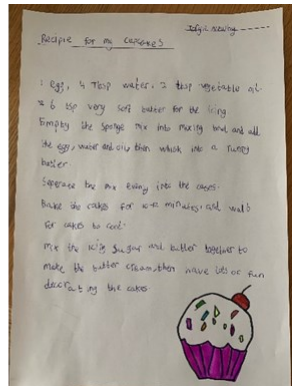 Recipie for my cupcakes
1 egg, 4 tbsp water, 2 tbsp vegetable oil
* 6 tsp very soft butter for the icing
Empty the sponge mix into mixing bowl and add
the egg, water and oil, then which into a runny
batter
Seperate the mix evenly into the cases.
Bake the cakes for 10-12 minutes, and wait
for cakes to cool.
mix the icing sugar and butter together to
make the butter cream, then have lots of fun
decorating the cakes.